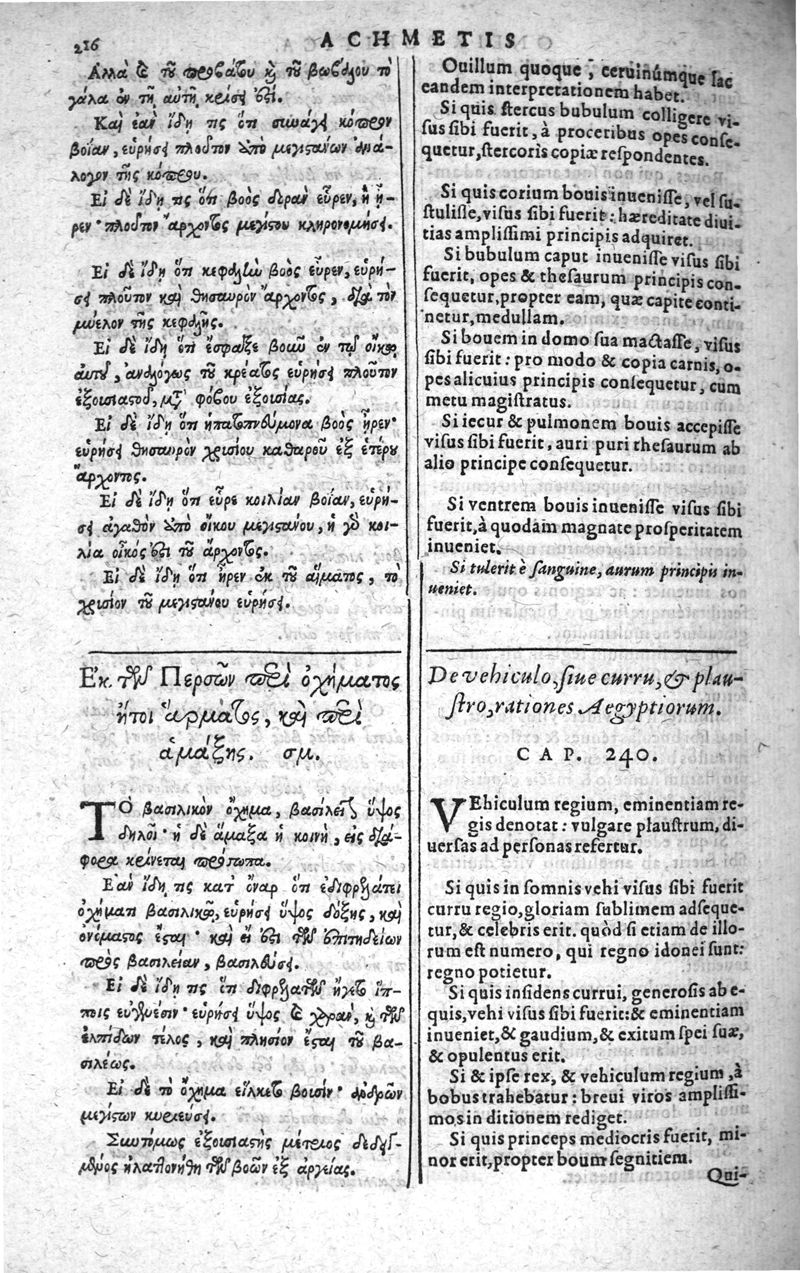 216
ACHMETIS
Ἀλλὰ καὶ τοῦ προβάτου καὶ τοῦ βουβάλου τὸ
γάλα ἐν τῇ αὐτῇ κρίσει ἐστί.
Καὶ ἐὰν ἴδῃ τις ὅτι συνάγει κόπρον
βοΐαν, εὑρήσει πλοῦτον ἀπὸ μεγιστάνων ἀνά-
λογον τῆς κόπρου.
Εἰ δὲ ἴδῃ τις ὅτι βοὸς δορὰν εὗρεν, ἢ ἦ-
ρεν· πλοῦτον ἄρχοντος μεγίστου κληρονομήσει.
Εἰ δὲ ἴδῃ ὅτι κεφαλὴν βοὸς εὗρεν, εὑρή-
σει πλοῦτον καὶ θησαυρὸν ἄρχοντος, διὰ τὸν
μυελὸν τῆς κεφαλῆς.
Εἰ δὲ ἴδῃ ὅτι ἔσφαξε βοῦν ἐν τῷ οἴκῳ
αὐτοῦ, ἀναλόγως τοῦ κρέατος εὑρήσει πλοῦτον
ἐξουσιαστοῦ, μετὰ φόβου ἐξουσίας.
Εἰ δὲ ἴδῃ ὅτι ἡπατοπνεύμονα βοὸς ἦρεν·
εὑρήσει θησαυρὸν χρυσίου καθαροῦ ἐξ ἑτέρου
ἄρχοντος.
Εἰ δὲ ἴδῃ ὅτι εὗρε κοιλίαν βοΐαν, εὑρή-
σει ἀγαθὸν ἀπὸ οἴκου μεγιστάνου, ἡ γὰρ κοι-
λία οἶκός ἐστι τοῦ ἄρχοντος.
Εἰ δὲ ἴδῃ ὅτι ἦρεν ἐκ τοῦ αἵματος, τὸ
χρυσίον τοῦ μεγιστάνου εὑρήσει.
Ἐκ τῶν Περσῶν περὶ ὀχήματος
ἤτοι ἅρματος, καὶ περὶ
ἁμάξης. σμ.
ΤΟ βασιλικὸν ὄχημα, βασιλέως ὕψος
δηλοῖ· ἡ δὲ ἅμαξα ἡ κοινὴ, εἰς διά-
φορα κρίνεται πρόσωπα.
Ἐὰν ἴδῃ τις κατ' ὄναρ ὅτι ἐδιφρηλάτει
ὀχήματι βασιλικῷ, εὑρήσει ὕψος δόξης, καὶ
ὀνόματος ἔσται· καὶ εἰ ἔστι τῶν ἐπιτηδείων
πρὸς βασιλείαν, βασιλεύσει.
Εἰ δὲ ἴδῃ τις ὅτι διφρηλατῶν ἤγετο ἵπ-
ποις εὐγενέσιν· εὑρήσει ὕψος καὶ χαρὰν, καὶ τῶν
ἐλπίδων τέλος, καὶ πλησίον ἔσται τοῦ βα-
σιλέως.
Εἰ δὲ τὸ ὄχημα εἵλκετο βουσὶν· ἀνδρῶν
μεγίστων κυριεύσει.
Συντόμως ἐξουσιαστὴς μέτριος
ἠλαττονήθη τῶν βοῶν ἐξ ἀργείας.
Ouillum quoque, ceruinúmque lac
eandem interpretationem habet.
Si quis stercus bubulum colligere vi-
sus sibi fuerit, à proceribus opes conse-
quetur, stercoris copiæ respondentes.
Si quis corium bouis inuenisse, vel su-
stulisse, visus sibi fuerit: hæreditate diui-
tias amplissimi principis adquiret.
Si bubulum caput inuenisse visus sibi
fuerit, opes & thesaurum principis con-
sequetur, propter eam, quæ capite conti-
netur, medullam.
Si bouem in domo sua mactasse, visus
sibi fuerit: pro modo & copia carnis, o-
pes alicuius principis consequetur, cum
metu magistratus.
Si iecur & pulmonem bouis accepisse
visus sibi fuerit, auri puri thesaurum ab
alio principe consequetur.
Si ventrem bouis inuenisse visus sibi
fuerit, à quodam magnate prosperitatem
inueniet.
Si tulerit è sanguine, aurum principis in-
ueniet.
De vehiculo, siue curru, & plau-
stro, rationes Aegyptiorum.
CAP. 240.
VEhiculum regium, eminentiam re-
gis denotat: vulgare plaustrum, di-
uersas ad personas refertur.
Si quis in somnis vehi visus sibi fuerit
curru regio, gloriam sublimem adseque-
tur, & celebris erit. quòd si etiam de illo-
rum est numero, qui regno idonei sunt:
regno potietur.
Si quis insidens currui, generosis ab e-
quis, vehi visus sibi fuerit: & eminentiam
inueniet, & gaudium, & exitum spei suæ,
& opulentus erit.
Si & ipse rex, & vehiculum regium, à
bobus trahebatur: breui viros amplissi-
mos in ditionem rediget.
Si quis princeps mediocris fuerit, mi-
nor erit, propter boum segnitiem.
Qui-